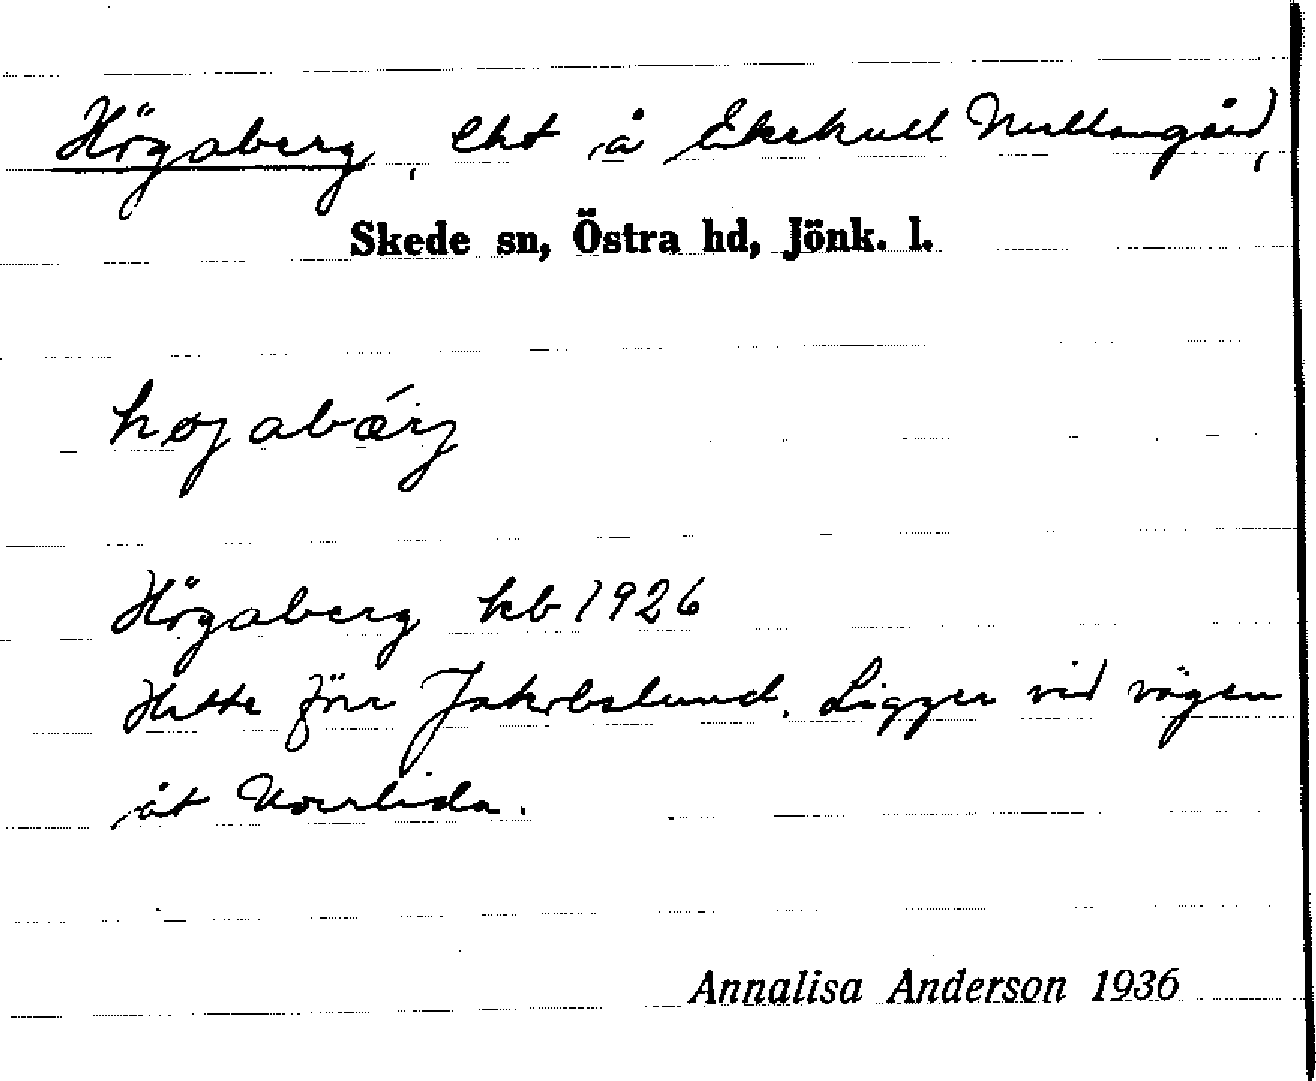 Högaberg, lht å Ekekull Mellangård,
Skede sn, Östra hd, Jönk. l.
høgabǽrj
Högaberg kb 1926
Hette förr Jakobslund. Ligger vid vägen
åt Norrlida.
Annalisa Anderson 1936